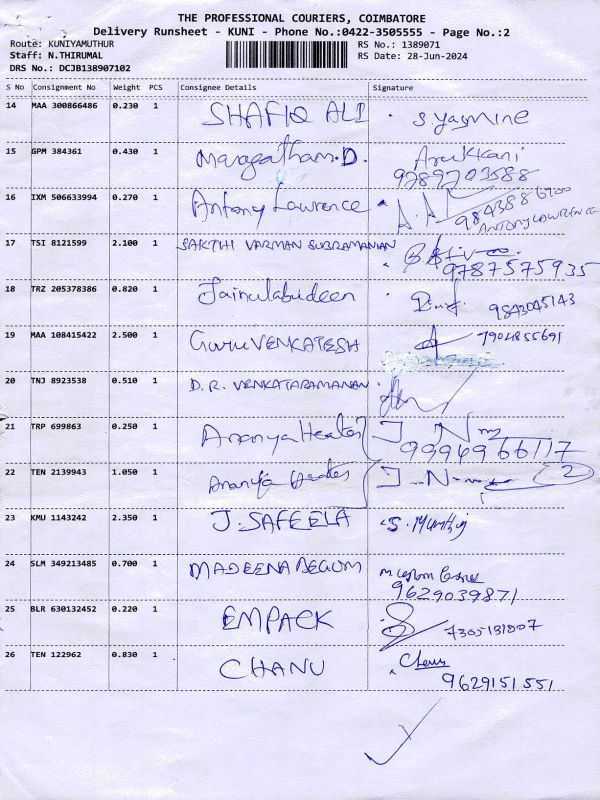 THE PROFESSIONAL COURIERS, COIMBATORE
Delivery Runsheet - KUNI - Phone No.:0422-3505555 - Page No.:2
Route: KUNIYAMUTHUR RS No.: 1389071
Staff: N.THIRUMAL RS Date: 28-Jun-2024
DRS No.: DCJB138907102
S No Consignment No Weight PCS Consignee Details Signature
14 MAA 300866486 0.230 1 SHAFIQ ALI S.Yasmine
15 GPM 384361 0.430 1 Maragatham.D. Arukkani
9789203588
16 IXM 506633994 0.270 1 Antony Lawrence A.A
9843886900
ANTONY LAWRENCE
17 TSI 8121599 2.100 1 SAKTHI VARMAN SUBRAMANIAN
9787575935
18 TRZ 205378386 0.820 1 Jainulabudeen 9843045143
19 MAA 108415422 2.500 1 Guru VENKATESH 7904855691
20 TNJ 8923538 0.510 1 D.R. VENKATARAMANAN
21 TRP 699863 0.250 1 Ananya Heates J. N
9994966117
22 TEN 2139943 1.050 1 Ananya Heates J. N 2
23 KMU 1143242 2.350 1 J.SAFEELA S.
24 SLM 349213485 0.700 1 MADEENA BEGUM
9629039871
25 BLR 630132452 0.220 1 EMPACK 7305131807
26 TEN 122962 0.830 1 CHANU
9629151551